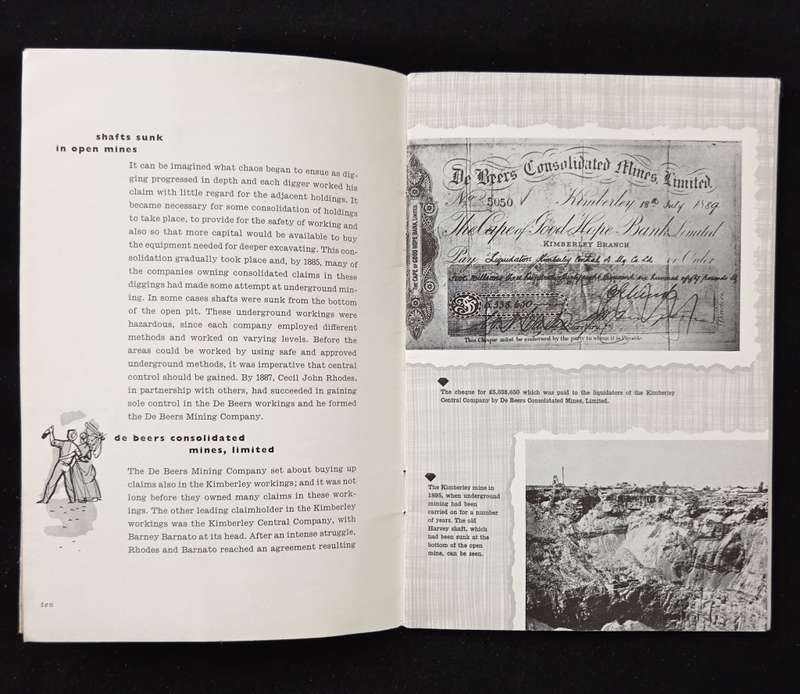 shafts sunk
in open mines
It can be imagined what chaos began to ensue as dig-
ging progressed in depth and each digger worked his
claim with little regard for the adjacent holdings. It
became necessary for some consolidation of holdings
to take place, to provide for the safety of working and
also so that more capital would be available to buy
the equipment needed for deeper excavating. This con-
solidation gradually took place and, by 1885, many of
the companies owning consolidated claims in these
diggings had made some attempt at underground min-
ing. In some cases shafts were sunk from the bottom
of the open pit. These underground workings were
hazardous, since each company employed different
methods and worked on varying levels. Before the
areas could be worked by using safe and approved
underground methods, it was imperative that central
control should be gained. By 1887, Cecil John Rhodes,
in partnership with others, had succeeded in gaining
sole control in the De Beers workings and he formed
the De Beers Mining Company.
de beers consolidated
mines, limited
The De Beers Mining Company set about buying up
claims also in the Kimberley workings; and it was not
long before they owned many claims in these work-
ings. The other leading claimholder in the Kimberley
workings was the Kimberley Central Company, with
Barney Barnato at its head. After an intense struggle,
Rhodes and Barnato reached an agreement resulting
ten
THE CAPE OF GOOD HOPE BANK, LIMITED
De Beers Consolidated Mines, Limited.
No. 5050
Kimberley 18th July 1889
The Cape of Good Hope Bank Limited
KIMBERLEY BRANCH
Pay Liquidators Kimberley Central D. Mg Co Ld. or Order
Five Millions three hundred thirty eight thousand six hundred fifty pounds
£ 5,338,650
This Cheque must be endorsed by the party to whom it is Payable
The cheque for £5,338,650 which was paid to the liquidators of the Kimberley
Central Company by De Beers Consolidated Mines, Limited.
The Kimberley mine in
1895, when underground
mining had been
carried on for a number
of years. The old
Harvey shaft, which
had been sunk at the
bottom of the open
mine, can be seen.